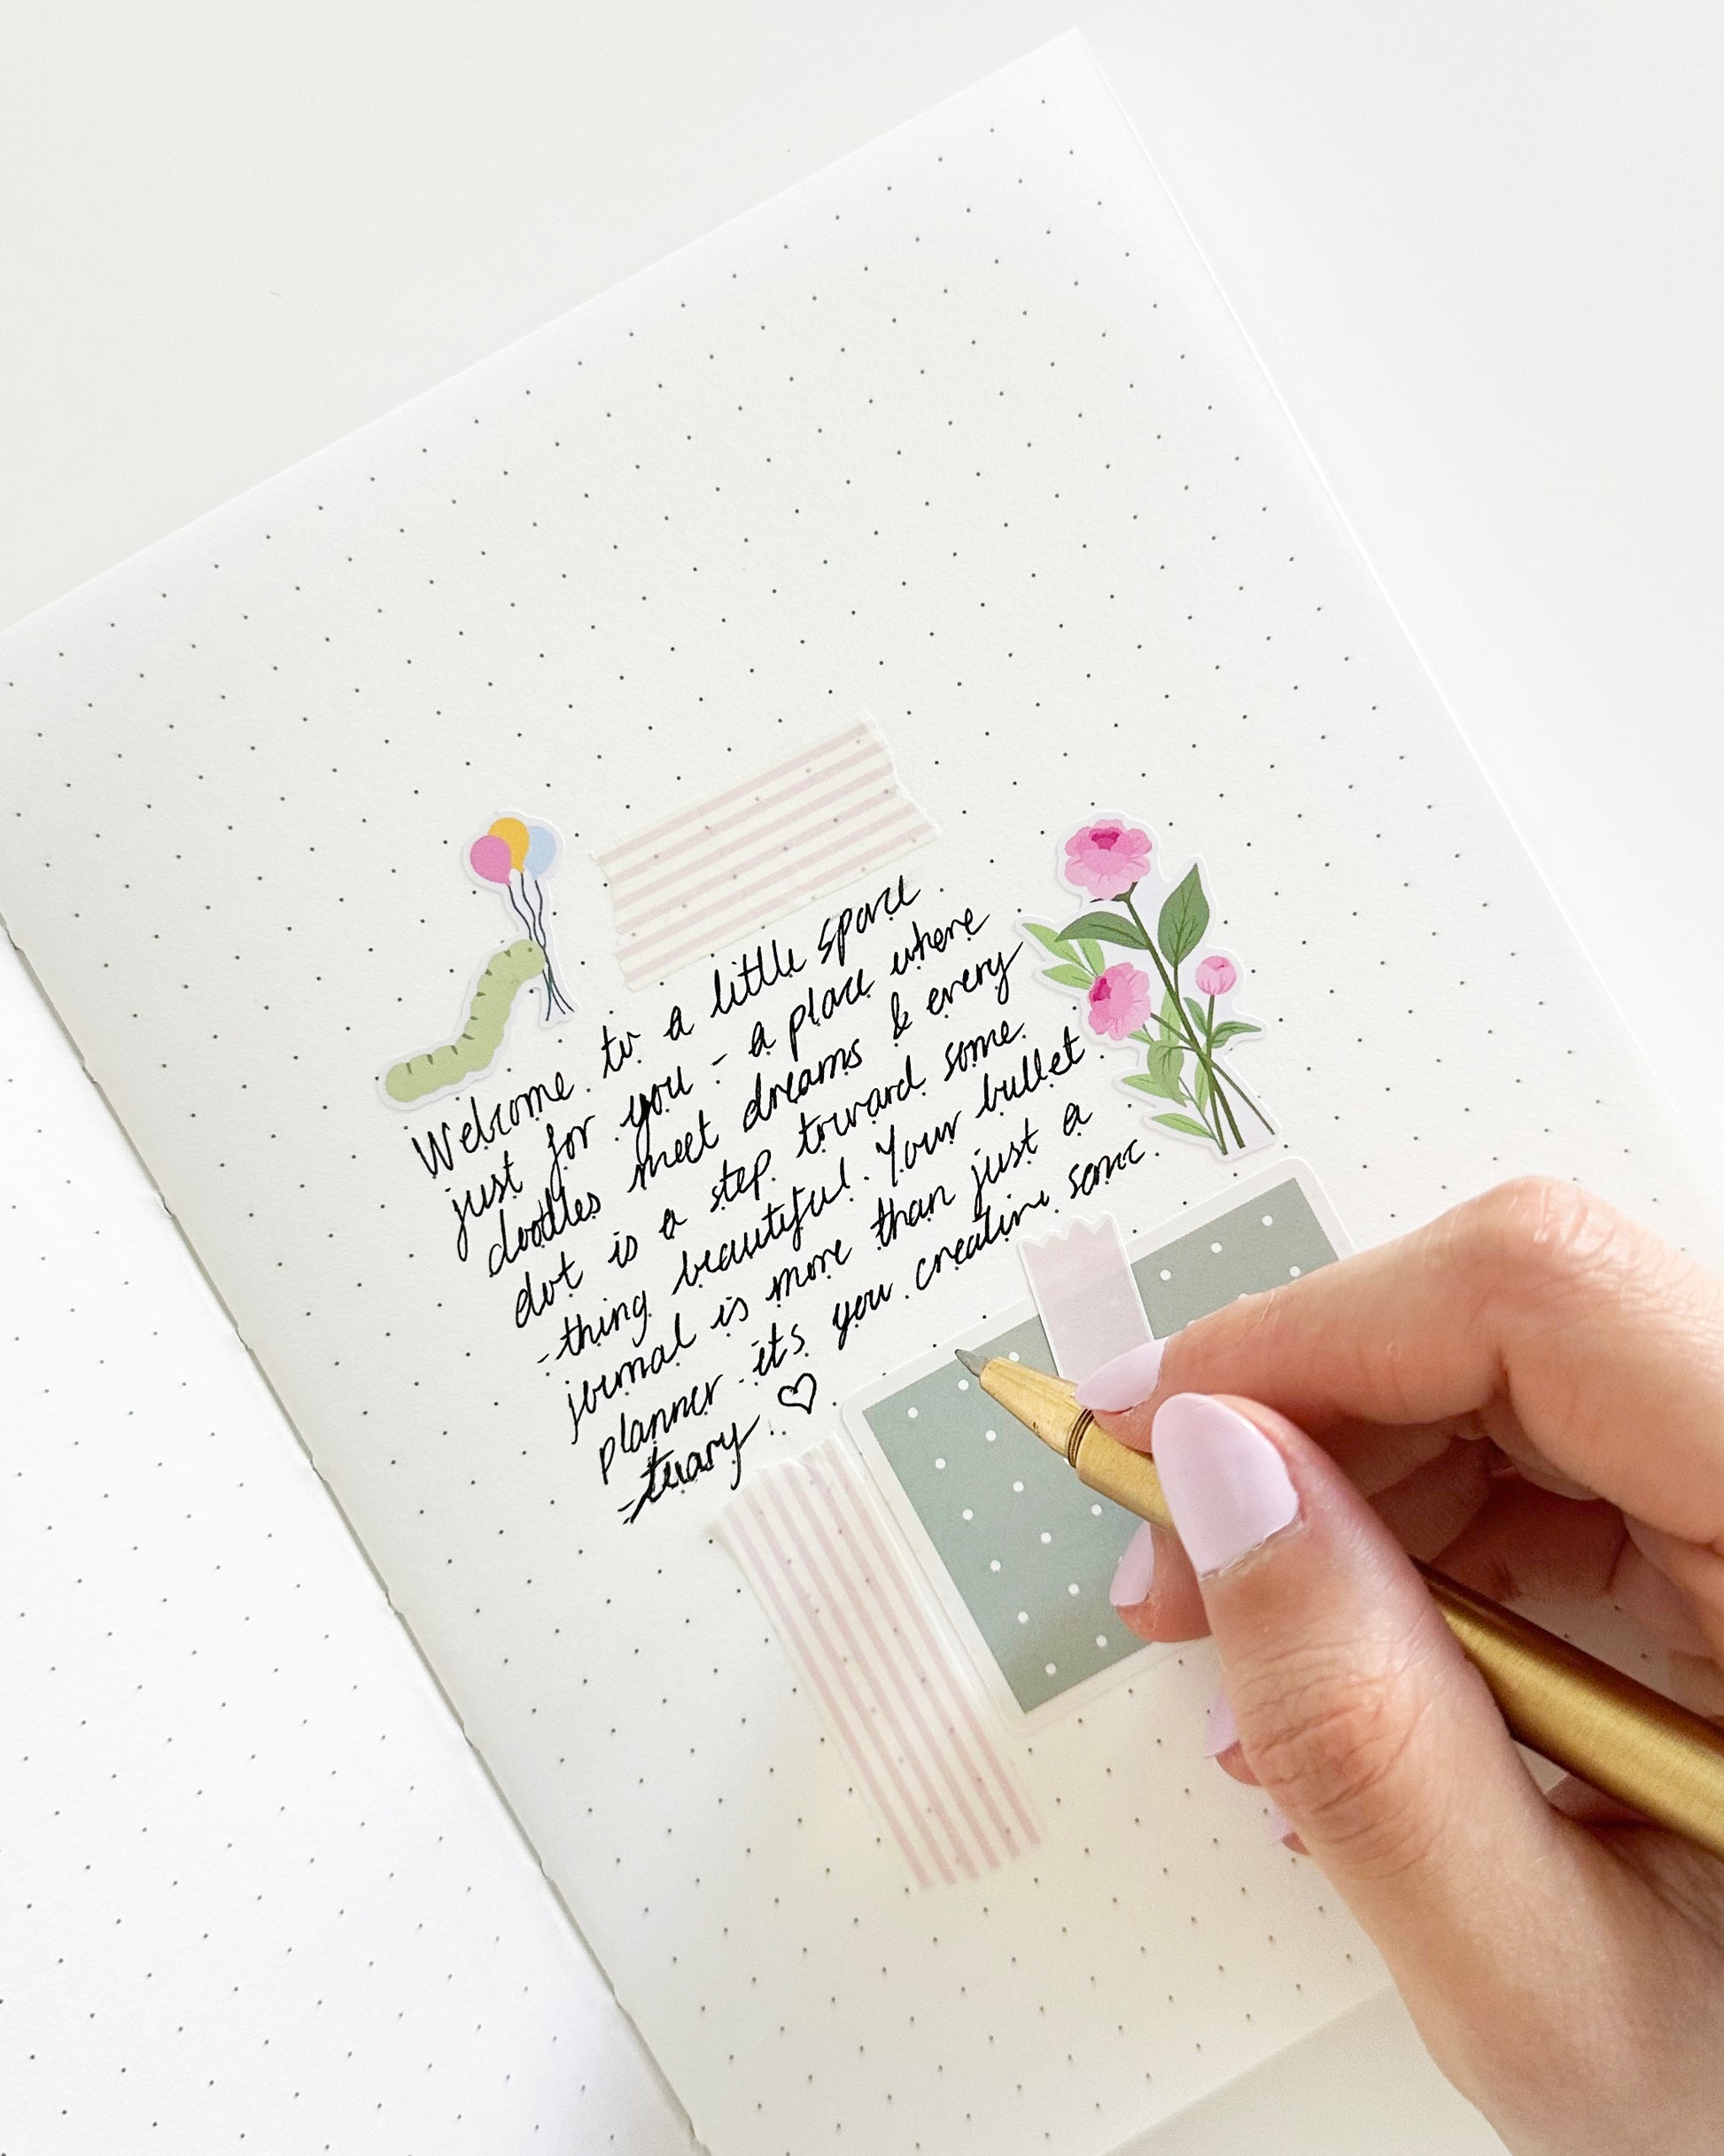 Welcome to a little space
just for you - a place where
doodles meet dreams & every
dot is a step toward some
-thing beautiful. Your bullet
journal is more than just a
planner - its you creating sanc
-tuary